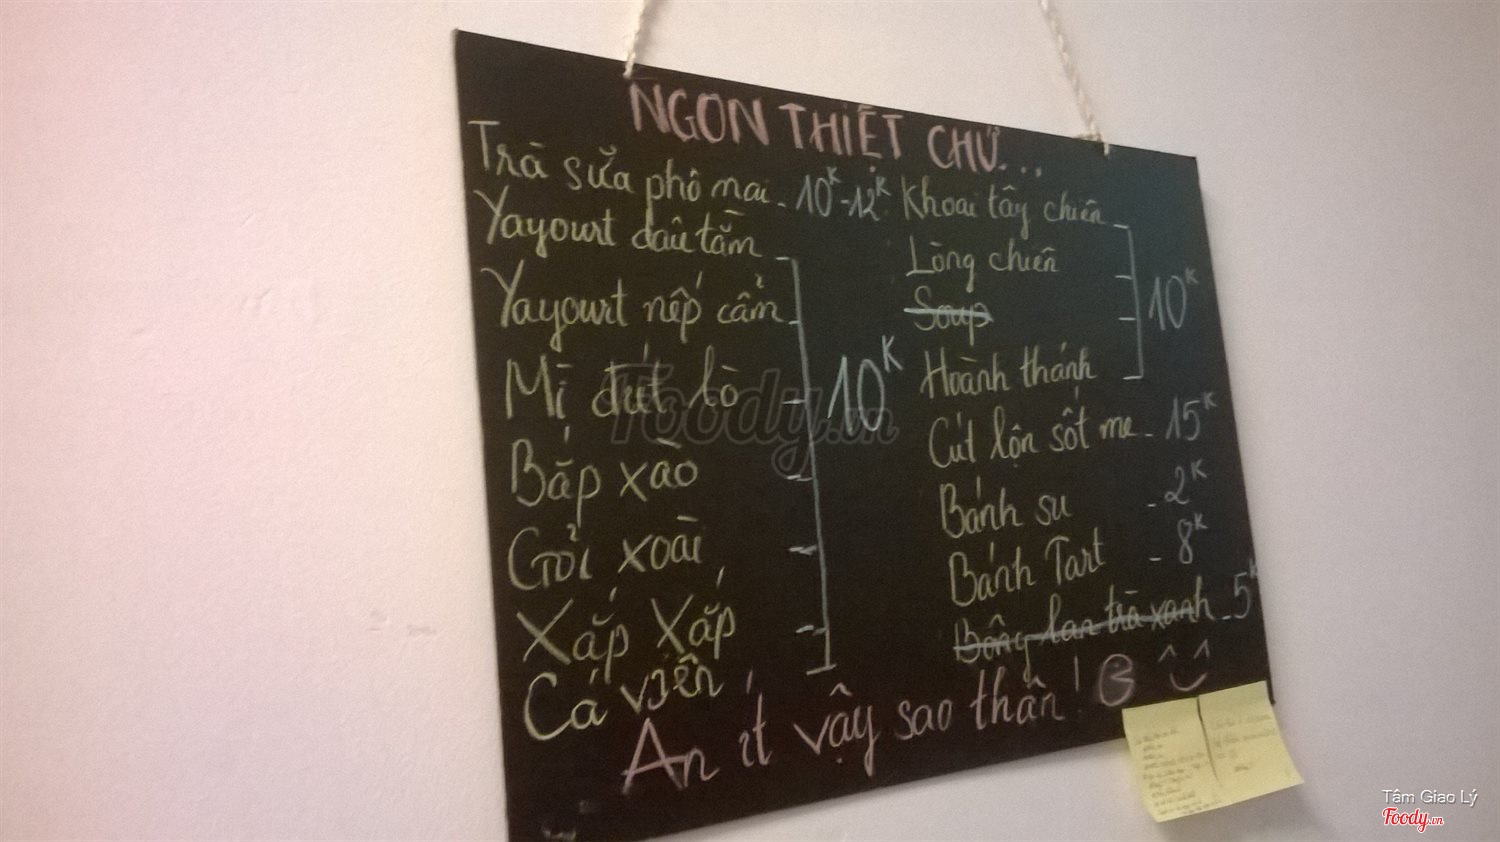 NGON THIỆT CHỨ...
Trà sữa phô mai - 10K-12K
Yayourt dâu tằm
Yayourt nếp cẩm
Mì đút lò
Bắp xào
Gỏi xoài
Xắp Xắp
Cá viên
10K
Khoai tây chiên
Lòng chiên
Soup
Hoành thánh
10K
Cút lộn sốt me - 15K
Bánh su - 2K
Bánh Tart - 8K
Bông lan trà xanh - 5K
Ăn ít vậy sao thần!
Foody.vn
Tâm Giao Lý
Foody.vn